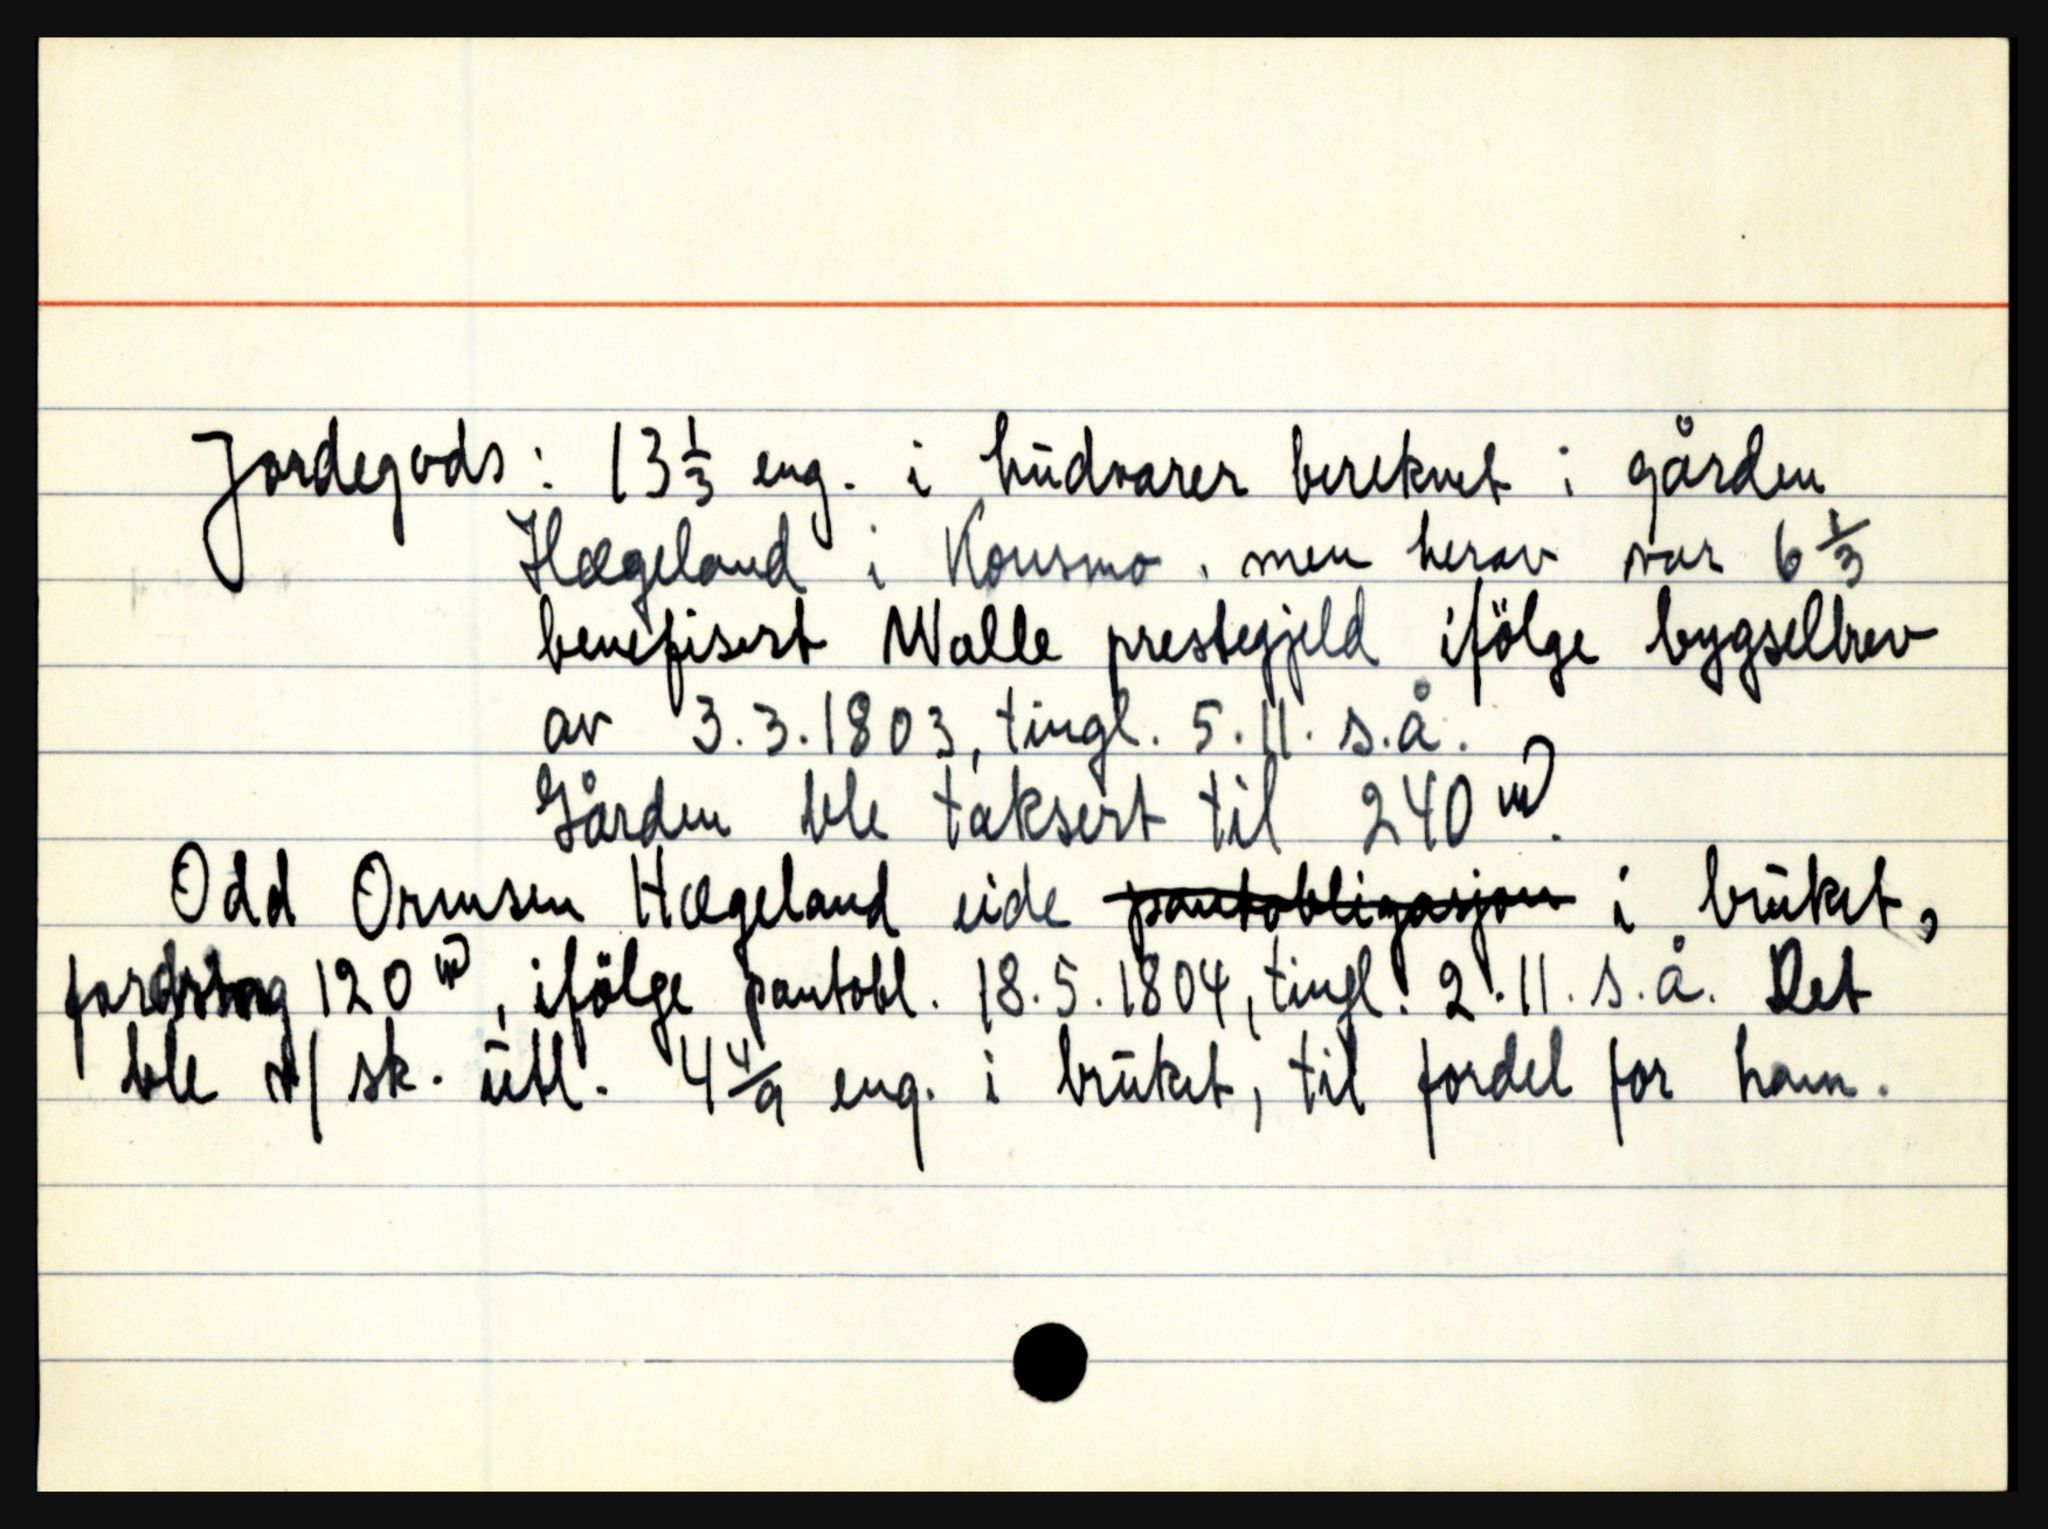 Jordegods: 13 1/3 eng. i hudvarer bereknet i gården
Hægeland i Konsmo, men herav var 6 1/3
benefisert Walle prestegjeld ifölge bygselbrev
av 3.3.1803, tingl. 5.11. s.å.
Gården ble taksert til 240
Odd Ormsen Hægeland eide pantobligasjon i bruket,
120, ifölge pantobl. 18.5.1804, tingl. 2.11. s.å. Det
ble v/ sk. utl. 4 4/9 eng. i bruket, til fordel for ham.